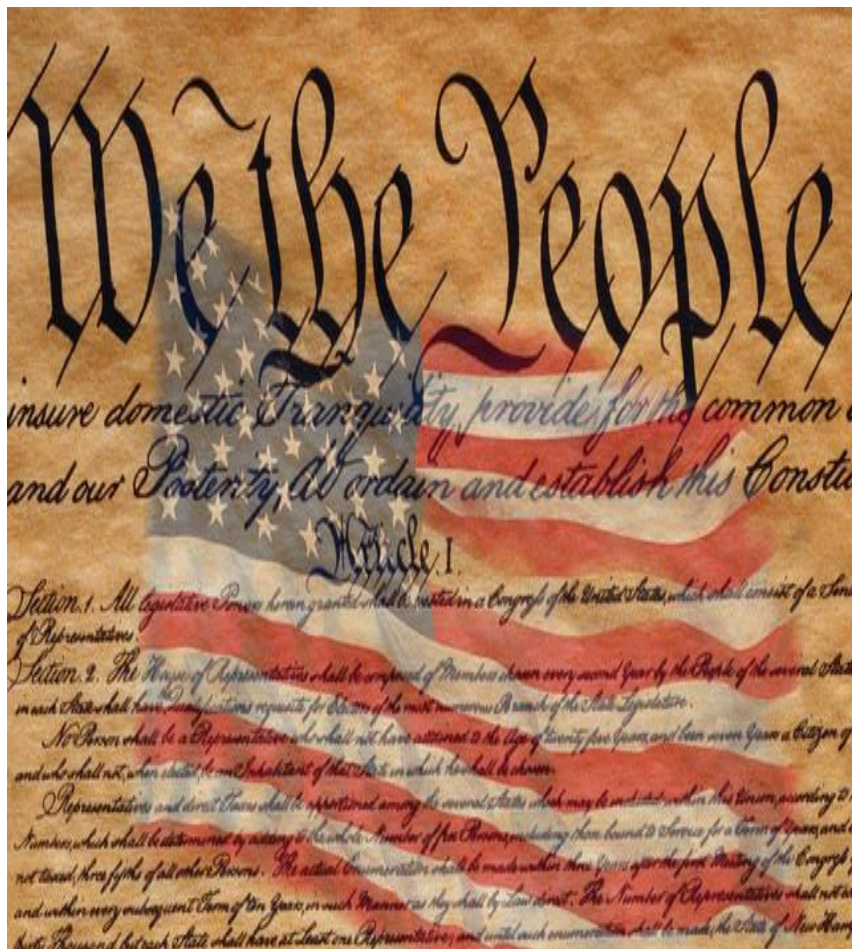 We the People
insure domestic Tranquility, provide for the common
and our Posterity, do ordain and establish this Constitu
Article. I.
Section. 1. All legislative Powers herein granted shall be vested in a Congress of the United States, which shall consist of a Sena
of Representatives.
Section. 2. The House of Representatives shall be composed of Members chosen every second Year by the People of the several States
in each State shall have the Qualifications requisite for Electors of the most numerous Branch of the State Legislature.
No Person shall be a Representative who shall not have attained to the Age of twenty five Years, and been seven Years a Citizen of
and who shall not, when elected, be an Inhabitant of that State in which he shall be chosen.
Representatives and direct Taxes shall be apportioned among the several States which may be included within this Union, according to
Numbers, which shall be determined by adding to the whole Number of free Persons, including those bound to Service for a Term of Years, and
not taxed, three fifths of all other Persons. The actual Enumeration shall be made within three Years after the first Meeting of the Congress
and within every subsequent Term of ten Years, in such Manner as they shall by Law direct. The Number of Representatives shall not
thirty Thousand, but each State shall have at Least one Representative; and until such enumeration shall be made, the State of New Hamp